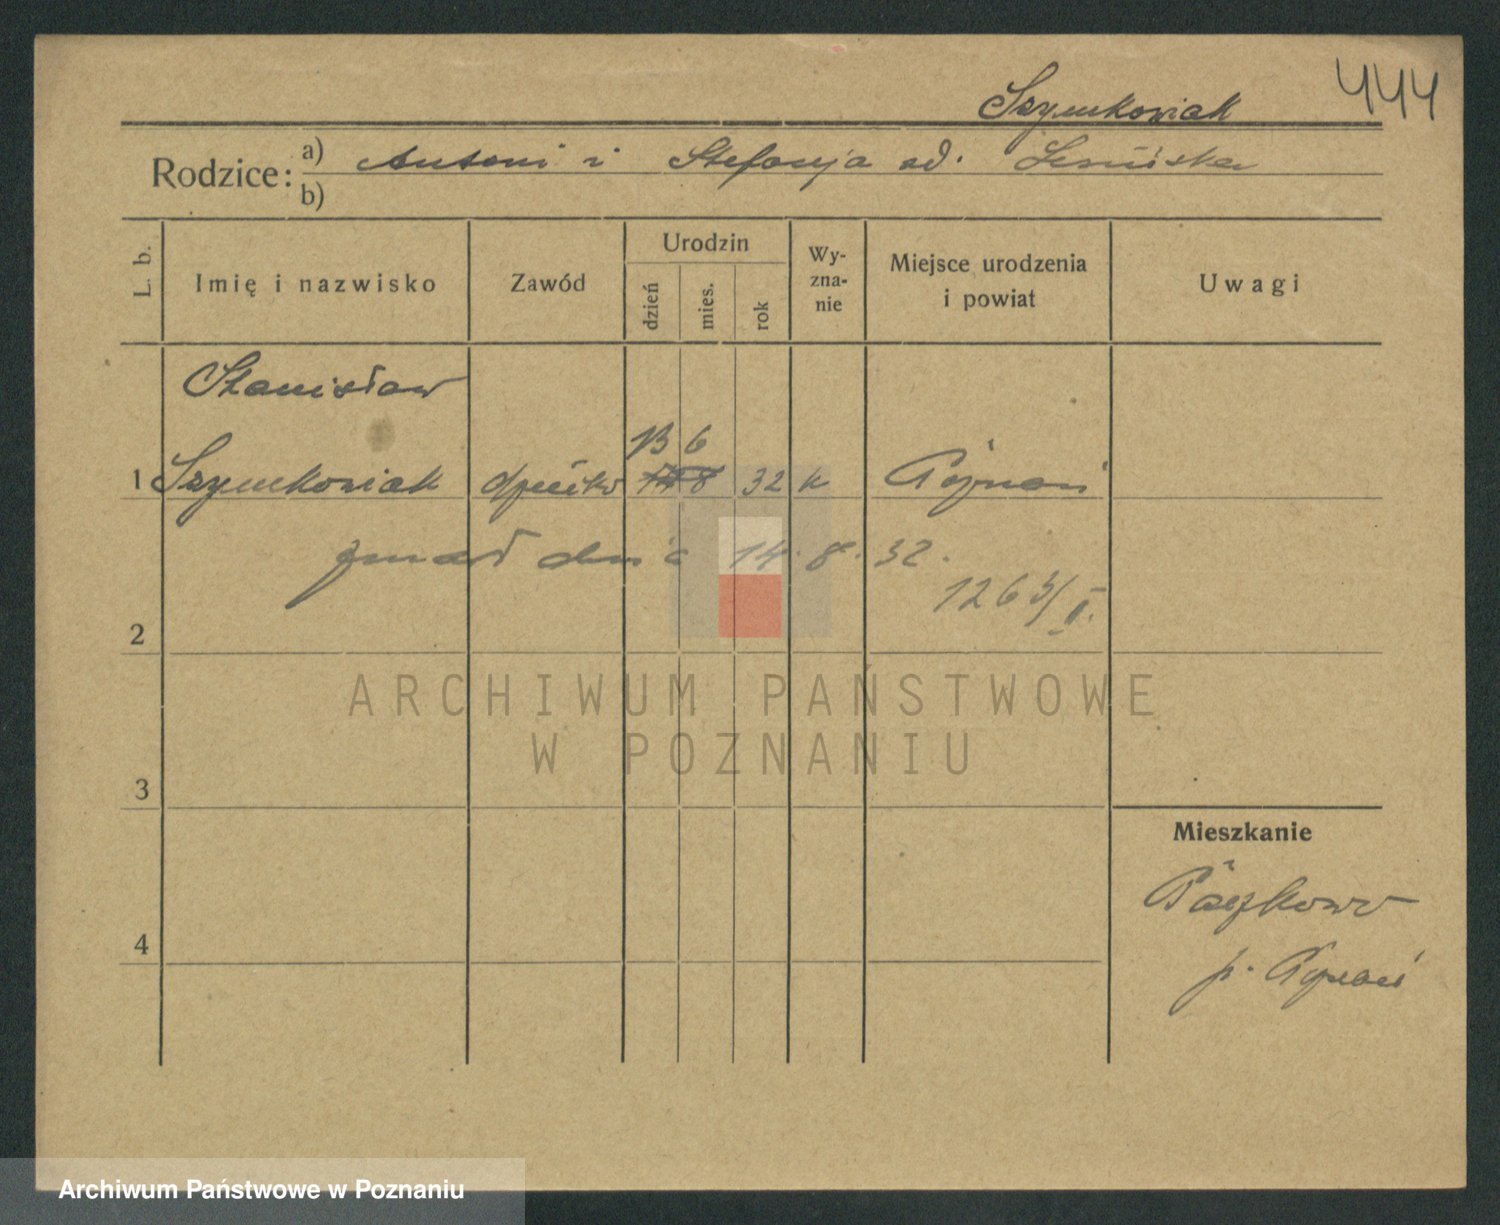 444
Szymkowiak
Rodzice: a) Antoni i Stefanja
b)
L. b.
Imię i nazwisko
Zawód
Urodzin
dzień
mies.
rok
Wy-
zna-
nie
Miejsce urodzenia
i powiat
Uwagi
Stanisław
13 6
1 Szymkowiak 14 8 32 k Poznań
zmarł dnia 14. 8. 32.
1263/II.
2
ARCHIWUM PAŃSTWOWE
W POZNANIU
3
Mieszkanie
p. Poznań
4
Archiwum Państwowe w Poznaniu